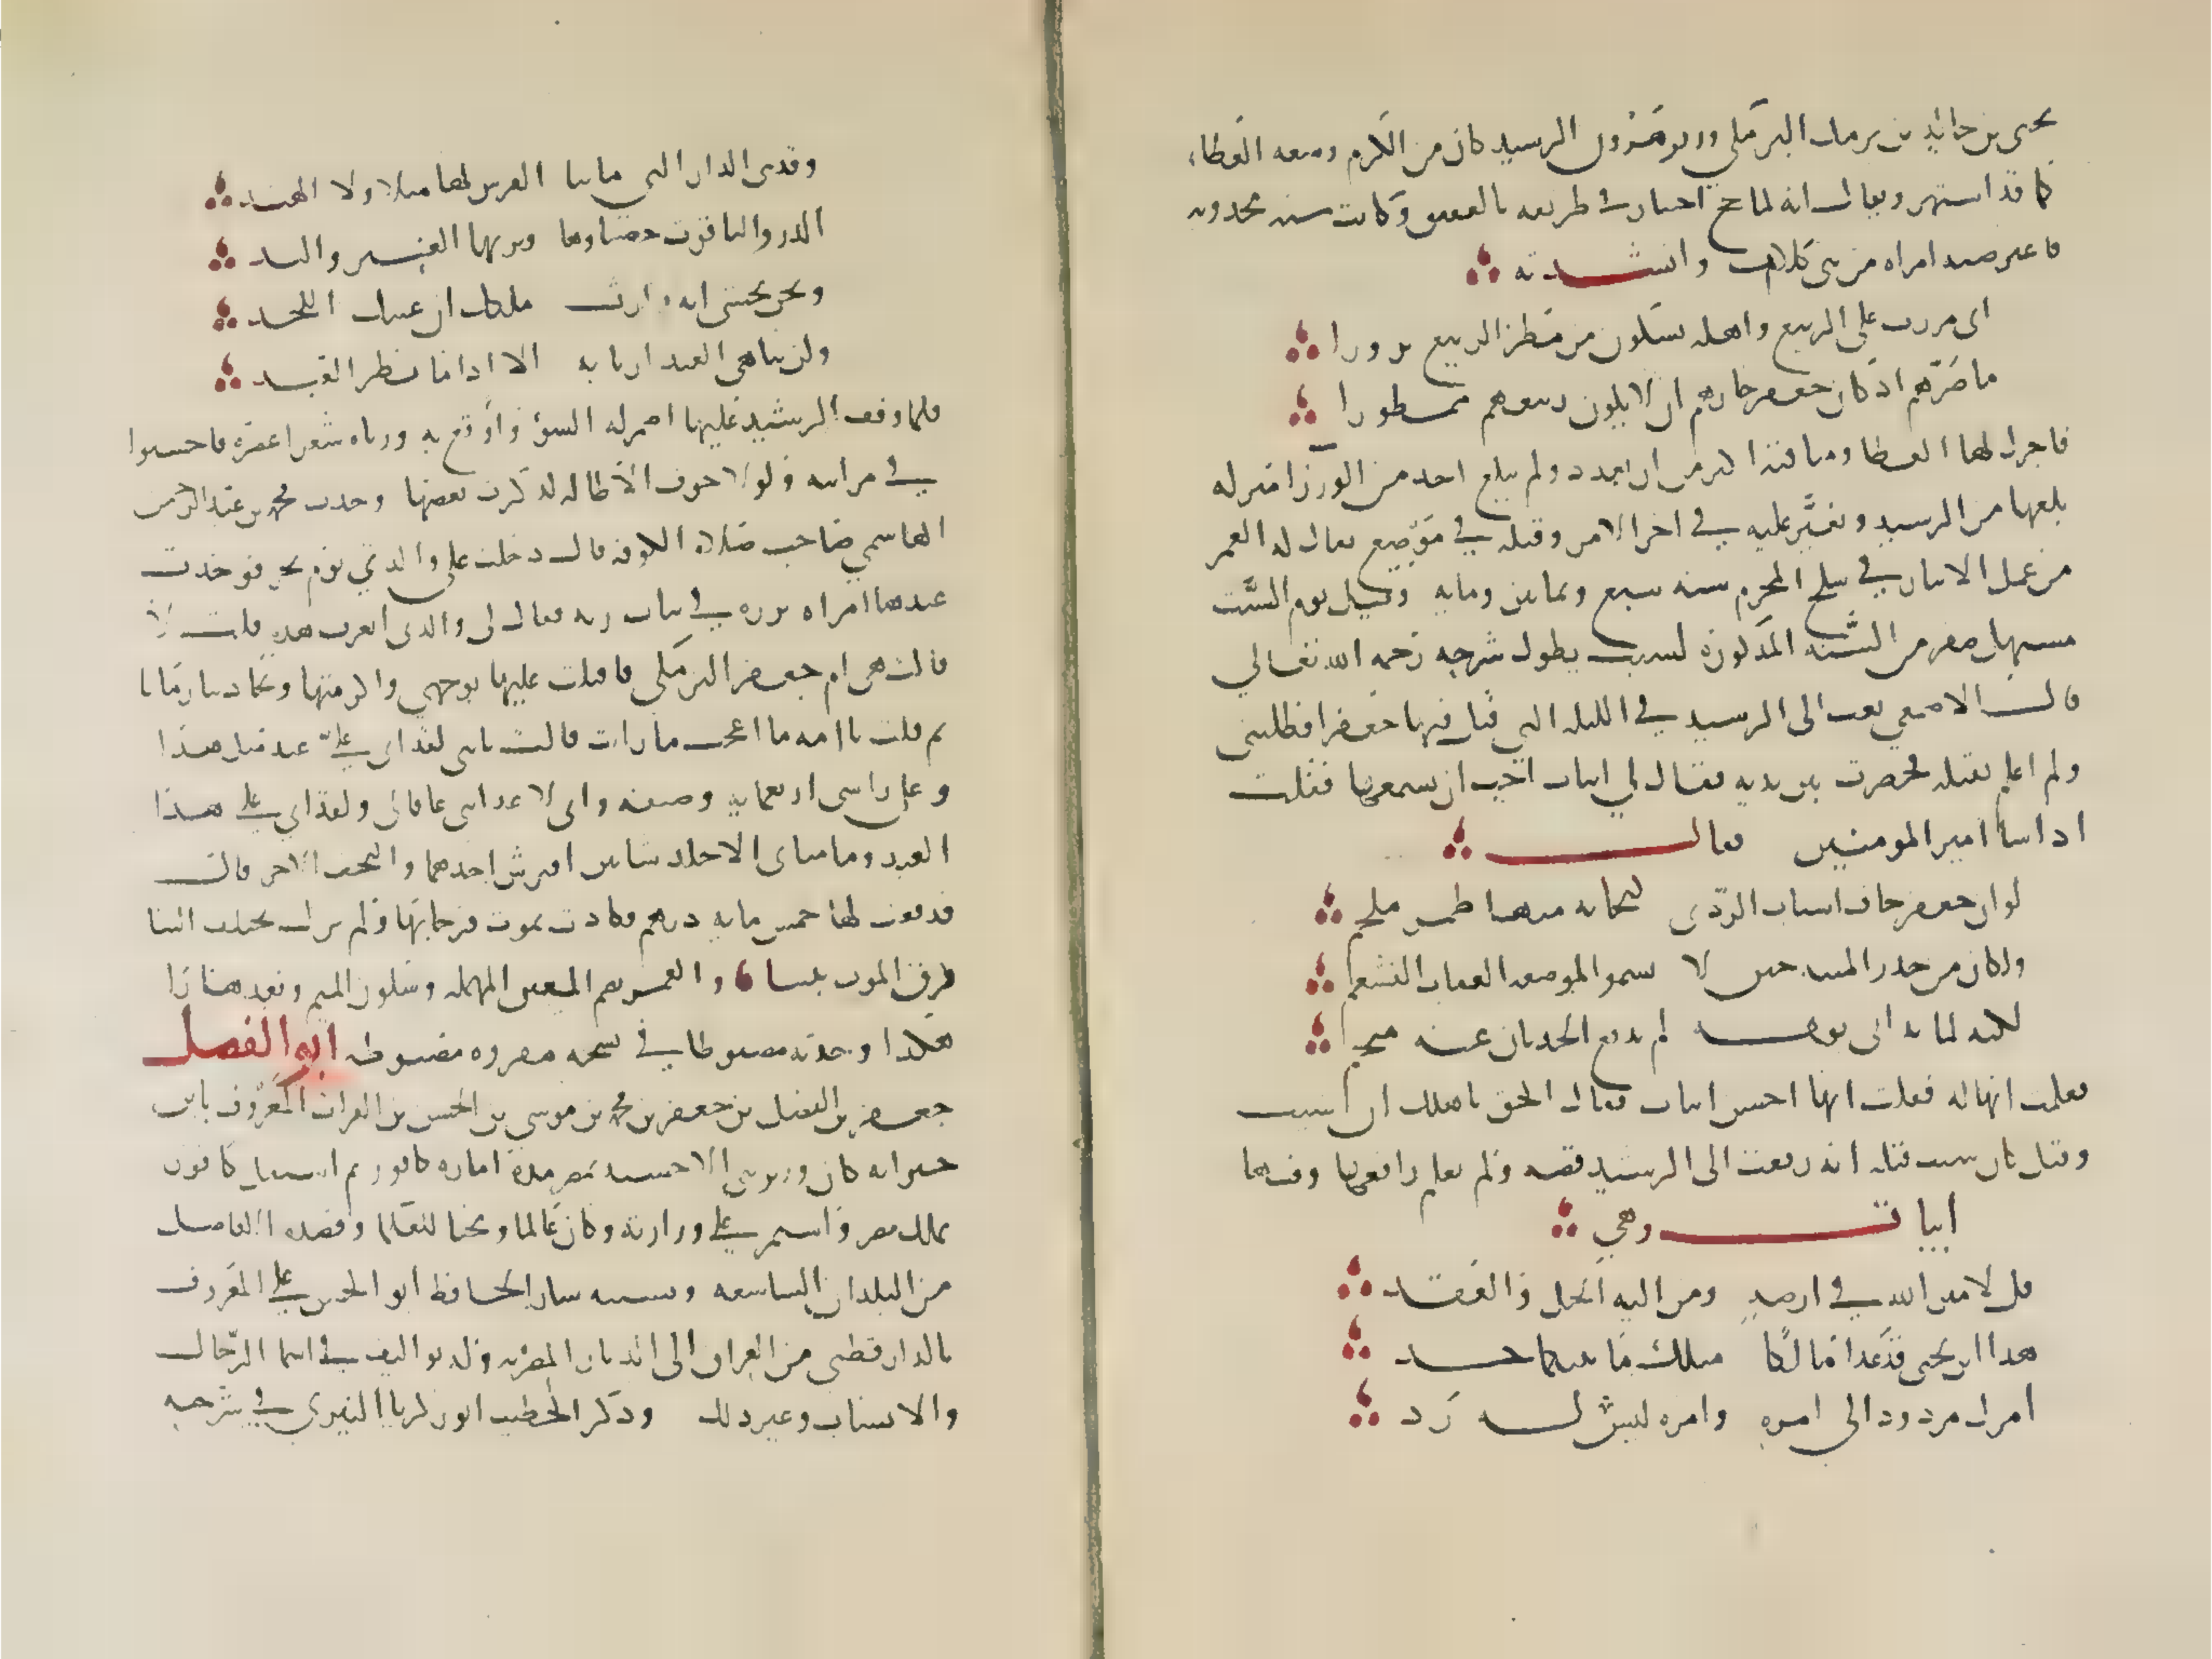 يحيى بن خالد بن برمك البرمكي وزير هرون الرشيد كان من الكرم وسعه العطاء
كما قد اشتهر ويقال انه لما حج اجتاز في طريقه بالعقيق وكانت سنه مجدبه
فاعترضته امراه من بني كلاب وانشدته
اني مررت على العقيق واهله يشكون من مطر الربيع نزورا
ما ضرهم اذ كان جعفر جارهم ان لا يكون ربيعهم ممطورا
فاجزل لها العطا ومناقبه اكثر من ان تعدد ولم يبلغ احد من الوزرا منزله
بلغها من الرشيد وتغير عليه في اخر الامر وقتله في موضع يقال له العمر
من عمل الانبار في سلخ المحرم سنه سبع وثمانين ومايه وقيل يوم السبت
مستهل صفر من السنه المذكوره لسبب يطول شرحه رحمه الله تعالي
قال الاصمعي بعث الى الرشيد في الليله التي قتل فيها جعفرا فطلبني
ولم اعلم بقتله فحضرت بين يديه فقال لي ابيات احب ان تسمعها فقلت
اذا شا امير المومنين فقال
لو ان جعفر خاف اسباب الردى لنجا به منها طمر ملجم
ولكان من حذر المنيه حيث لا يسمو لموضعه العقاب القشعم
لكنه لما اتى يومه لم يدفع الحدثان عنه منجم
فعلمت انها له فقلت انها احسن ابيات فقال الحق باهلك ان شيت
وقيل كان سبب قتله انه رفعت الى الرشيد قصه ولم يعلم رافعها وفيها
ابيات وهي
قل لامين الله في ارضه ومن اليه الحل والعقد
هذا ابن يحيى قد غدا مالكا مثلك ما بينكما حد
امرك مردود الى امره وامره ليس له رد
وقد بنى الدار التي ما بنا الفرس لها مثلا ولا الهند
الدر والياقوت حصباوها وتربها العنبر والند
ونحن نخشى انه وارث ملكك ان غيبك اللحد
ولن يباهي العبد اربابه الا اذا ما بطر العبد
فلما وقف الرشيد عليها اضمر له السوء واوقع به ورثاه شعرا عصره فاحسنوا
في مراثيه ولولا خوف الاطاله لذكرت بعضها وحدث محمد بن عبد الرحمن
الهاشمي صاحب صلاه الكوفه قال دخلت على والدتي يوم نحر فوجدت
عندها امراه برزه في ثياب رثه فقال لي والدتي اتعرف هذه قلت لا
قالت هي ام جعفر البرمكي فاقبلت عليها بوجهي واكرمتها وتحادثنا زمانا
ثم قلت يا امه ما اعجب ما رايت قالت يا بني لقد اتى علي عيد مثل هذا
وعلى راسي اربعمايه وصيفه واني لا عد ابني عاقا لي ولقد اتى علي هذا
العيد وما مناي الا جلد شاتين افترش احدهما والتحف الاخر قال
فدفعت لها خمس مايه درهم فكادت تموت فرحا بها ولم تزل تختلف الينا
فرق الموت بيننا والعمر بضم العين المهمله وسكون الميم وبعدها را
هكذا وجدته مضبوطا في نسخه مقروه مضبوطه ابو الفضل
جعفر بن الفضل بن جعفر بن محمد بن موسى بن الحسن بن الفرات المعروف بابن
حنزابه كان وزير بني الاخشيد بمصر مده اماره كافور ثم استقل كافور
بملك مصر واستمر على وزارته وكان عالما ومحبا للعلما وقصده الافاضل
من البلدان الشاسعه وبسببه سار الحافظ ابو الحسن علي المعروف
بالدارقطني من العراق الى الديار المصريه وله تواليف في اسما الرجال
والانساب وغير ذلك وذكر الخطيب ابو زكريا التبريزي في شرحه